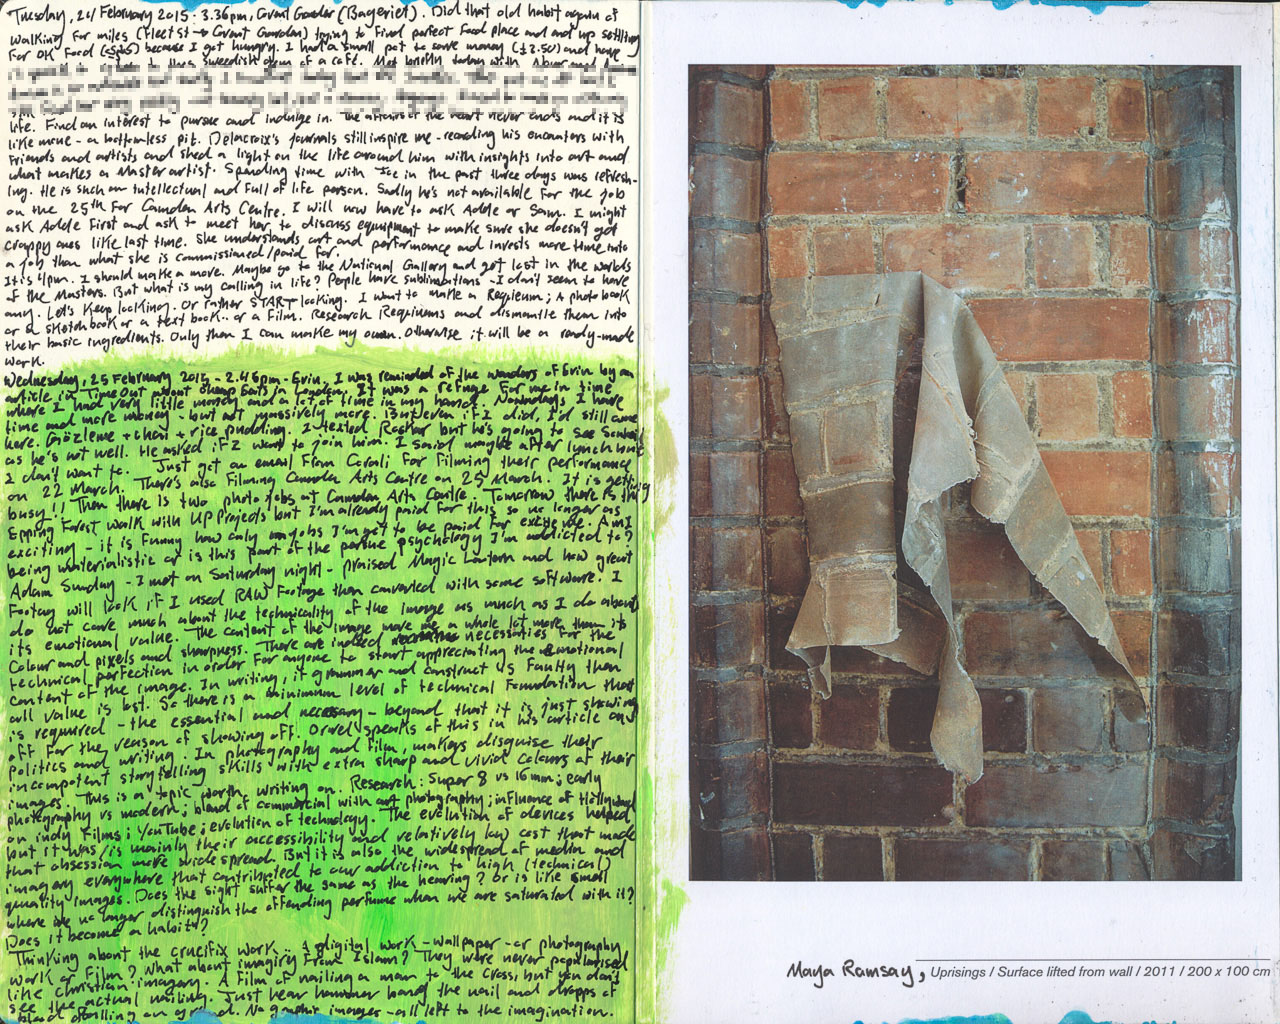 Tuesday, 24 February 2015. 3.36pm, Covent Garden (Bageriet). Did that old habit again of
walking for miles (Fleet St → Covent Garden) trying to find perfect food place and end up settling
for OK food (EAT) because I got hungry. I had a small pot to save money (£2.50) and have
to this Swedish gem of a café. Met briefly today with
life. Find an interest to pursue and indulge in. The affairs of the heart never ends and it is
like mine - a bottomless pit. Delacroix's journals still inspire me - reading his encounters with
friends and artists and shed a light on the life around him with insights into art and
what makes a Master artist. Spending time with Ice in the past three days was refresh-
ing. He is such an intellectual and full of life person. Sadly he's not available for the job
on the 25th for Camden Arts Centre. I will now have to ask Adele or Sam. I might
ask Adele first and ask to meet her to discuss equipment to make sure she doesn't get
crappy ones like last time. She understands art and performance and invests more time into
a job than what she is commissioned/paid for.
It is 4pm. I should make a move. Maybe go to the National Gallery and get lost in the worlds
of the Masters. But what is my calling in life? People have sublimations - I don't seem to have
any. Let's keep looking. Or rather START looking. I want to make a Requiem; A photobook
or a sketchbook or a text book.. or a film. Research Requiums and dismantle them into
their basic ingredients. Only then I can make my own. Otherwise it will be a ready-made
work.
Wednesday, 25 February 2015 - 2.46pm - Evin. I was reminded of the wonders of Evin by an
article in TimeOut about cheap Eats in London. It was a refuge for me in time
where I had very little money and a lot of time in my hand. Nowadays I have
time and more money - but not massively more. But even if I did, I'd still come
here. Gözleme + chai + rice pudding. I texted but he's going to see
as he's not well. He asked if I want to join him. I said maybe after lynch but
I don't want to. Just got an email from Corali for filming their performance
on 22 March. There's also filming Camden Arts Centre on 25 March. It is getting
busy!! Then there is two photo jobs at Camden Arts Centre. Tomorrow there is the
Epping Forest walk with UP Projects but I'm already paid for this so no longer as
exciting - it is funny how only on jobs I'm yet to be paid for excite me. Am I
being materialistic or is this part of the perfume psychology I'm addicted to?
Adam Sunday - I met on Saturday night - praised Magic Lantern and how great
footage will look if I used RAW footage then converted with some software. I
do not care much about the technicality of the image as much as I do about
its emotional value. The content of the image move me a whole lot more than its
colour and pixels and sharpness. There are indeed necessities for the
technical perfection in order for anyone to start appreciating the emotional
content of the image. In writing, if grammer and construct is faulty then
all value is lost. So there is a minimum level of technical foundation that
is required - the essential and necessary - beyond that it is just showing
off for the reason of showing off. Orwel speaks of this in his article on
politics and writing. In photography and film, makers disguise their
incompotent storytelling skills with extra sharp and vivid colours of their
images. This is a topic worth writing on. Research: Super 8 vs 16mm; early
photography vs modern; blend of commercial with art photography; influence of Hollywood
on indy films; YouTube; evolution of technology. The evolution of devices helped
but it was/is mainly their accessibility and relatively low cost that made
that obsession more widespread. But it is also the widespread of media and
imagery everywhere that contributed to our addiction to high (technical)
quality images. Does the sight suffer the same as the hearing? Or is like smell
where we no longer distinguish the offending perfume when we are saturated with it?
Does it become a habit?
Thinking about the crucifix work.. A digital work - wallpaper - or photography
work or film? What about imagery from Islam? They were never popularised
like christian imagery. A film of nailing a man to the cross, but you don't
see the actual nailing. Just hear hammer bang the nail and dropps of
blood falling on ground. No graphic images - all left to the imagination.
Maya Ramsay, Uprisings / Surface lifted from wall / 2011 / 200 x 100 cm